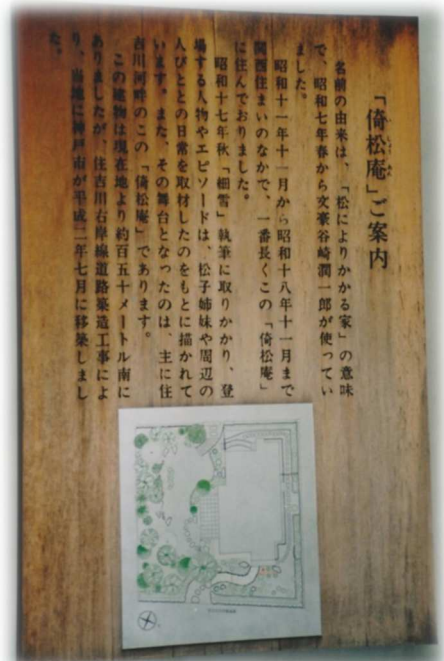 「倚松庵」ご案内
名前の由来は、「松によりかかる家」の意味
で、昭和七年春から文豪谷崎潤一郎が使ってい
ました。
昭和十一年十一月から昭和十八年十一月まで
関西住まいのなかで、一番長くこの「倚松庵」
に住んでおりました。
昭和十七年秋「細雪」執筆に取りかかり、登
場する人物やエピソードは、松子姉妹や周辺の
人びととの日常を取材したのをもとに描かれて
います。また、その舞台となったのは、主に住
吉川河畔のこの「倚松庵」であります。
この建物は現在地より約百五十メートル南に
ありましたが、住吉川右岸線道路築造工事によ
り、当地に神戸市が平成二年七月に移築しまし
た。